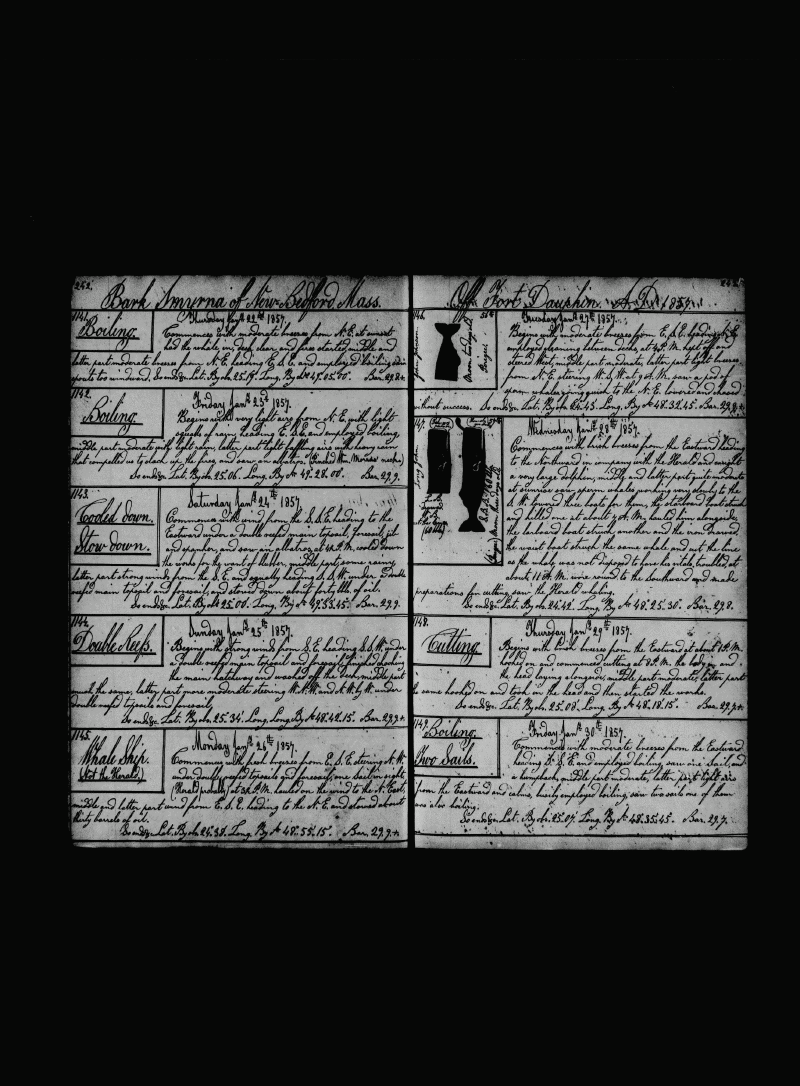 252.
Bark Smyrna of New-Bedford Mass.
1141.
Boiling.
Thursday Janʸ 22ⁿᵈ 1857.
Commences with moderate breezes from N.E. at sunset
had the whale in, deck clear, and fires started, middle and
latter part moderate breezes from N.E. heading E.S.E. and employed boiling
spouts to windward. So ends &c. Lat. By ob. 25.19. Long. By
Bar. 29.8+
1142.
Boiling.
Friday Janʸ 23ʳᵈ 1857.
Begins with very light airs from N.E. with light
squalls of rain, heading E.S.E. and employed boiling,
middle part moderate with light rain, latter part light baffling airs with heavy rain
that compelled us to slack up the fires and saw an albatros.
So ends &c. Lat. By ob. 25.06. Long. By Aᶜ 49.28.00. Bar. 29.9.
1143.
Cooled down.
Stow down.
Saturday Janʸ 24ᵗʰ 1857.
Commences with wind from the S.S.E. heading to the
Eastward under a double reefed main topsail, foresail, jib
and spanker, and saw an albatros, at 4 P.M. cooled down
the works for the want of blubber, middle part some rainy,
latter part strong winds from the S.E. and squally heading S.S.W. under a double
reefed main topsail and foresail, and stowed down about forty bbls. of oil.
So ends &c. Lat. By ob. 25.00. Long. By Aᶜ 49.53.45. Bar. 29.9.
1144.
Double Reefs.
Sunday Janʸ 25ᵗʰ 1857.
Begins with strong winds from S.E. heading S.S.W. under
a double reefed main topsail and foresail finished stowing
the main hatchway and washed off the deck, middle part
much the same, latter part more moderate steering W.N.W. and N.W. by W. under
double reefed topsails and foresail,
So ends &c. Lat. By ob. 25.34. Long. By Aᶜ 48.42.15. Bar. 29.9+
1145.
Whale Ship.
(Not the Herald.)
Monday Janʸ 26ᵗʰ 1857.
Commences with fresh breezes from E.S.E. steering N.W.
under double reefed topsails and foresail, one sail in sight
at 3 P.M. hauled on the wind to the N.East,
middle and latter part wind from E.S.E. heading to the N.E. and stowed about
thirty barrels of oil.
So ends &c. Lat. By ob. 24.38. Long. By Aᶜ 48.55.15. Bar. 29.9+
Off Fort Dauphin. A.D. 1857.
1146.
Tuesday Janʸ 27ᵗʰ 1857.
Begins with moderate breezes from E.S.E. heading N.E.
employed between decks, at 4 P.M. kept off and
steered West, middle part moderate, latter part light breezes,
from N.E. steering W. by W. at 9 A.M. saw a pod of
sperm whales going quick to the N.E. lowered and chased
without success. So ends &c. Lat. By ob. 24.43. Long. By Aᶜ 48.32.45. Bar. 29.8+
1147.
Wednesday Janʸ 28ᵗʰ 1857.
Commences with brisk breezes from the Eastward heading
to the Northward in company with the Herald and caught
a very large dolphin, middle and latter part quite moderate
at sunrise saw sperm whales working very slowly to the
S.W. lowered three boats for them, the starboard boat struck
and killed one at about 9 A.M. hauled him alongside,
the larboard boat struck another and the iron drawed,
the waist boat struck the same whale and cut the line
as the whale was not disposed to have his vitals troubled, at
about 11 A.M. wore round to the Southward and made
preparations for cutting, saw the Herald whaling.
So ends &c. Lat. By ob. 24.42. Long. By Aᶜ 48.25.30. Bar. 29.8.
1148.
Cutting.
Thursday Janʸ 29ᵗʰ 1857.
Begins with brisk breezes from the Eastward at about 1 P.M.
hooked on and commenced cutting at 8 P.M. the body in and
the head laying alongside, middle part moderate, latter part
the same hooked on and took in the head and then started the works.
So ends &c. Lat. By ob. 25.08. Long. By Aᶜ 48.18.15. Bar. 29.9+
1149.
Boiling.
Two Sails.
Friday Janʸ 30ᵗʰ 1857.
Commences with moderate breezes from the Eastward
heading N.N.E. and employed boiling saw a sail, and
a humpback, middle part moderate, latter part light airs
from the Eastward and calms, busily employed boiling, saw two sails one of them
was also boiling.
So ends &c. Lat. By ob. 25.07. Long. By Aᶜ 48.35.45. Bar. 29.7.